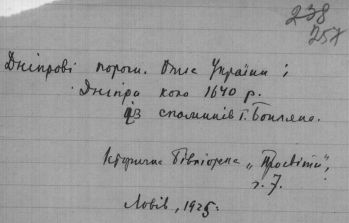 238
257
Дніпрові пороги. Опис України і
Дніпра коло 1640 р.
із споминів Г. Бопляна.
Історична Бібліотека „Просвіти",
ч. 7.
Львів, 1925.